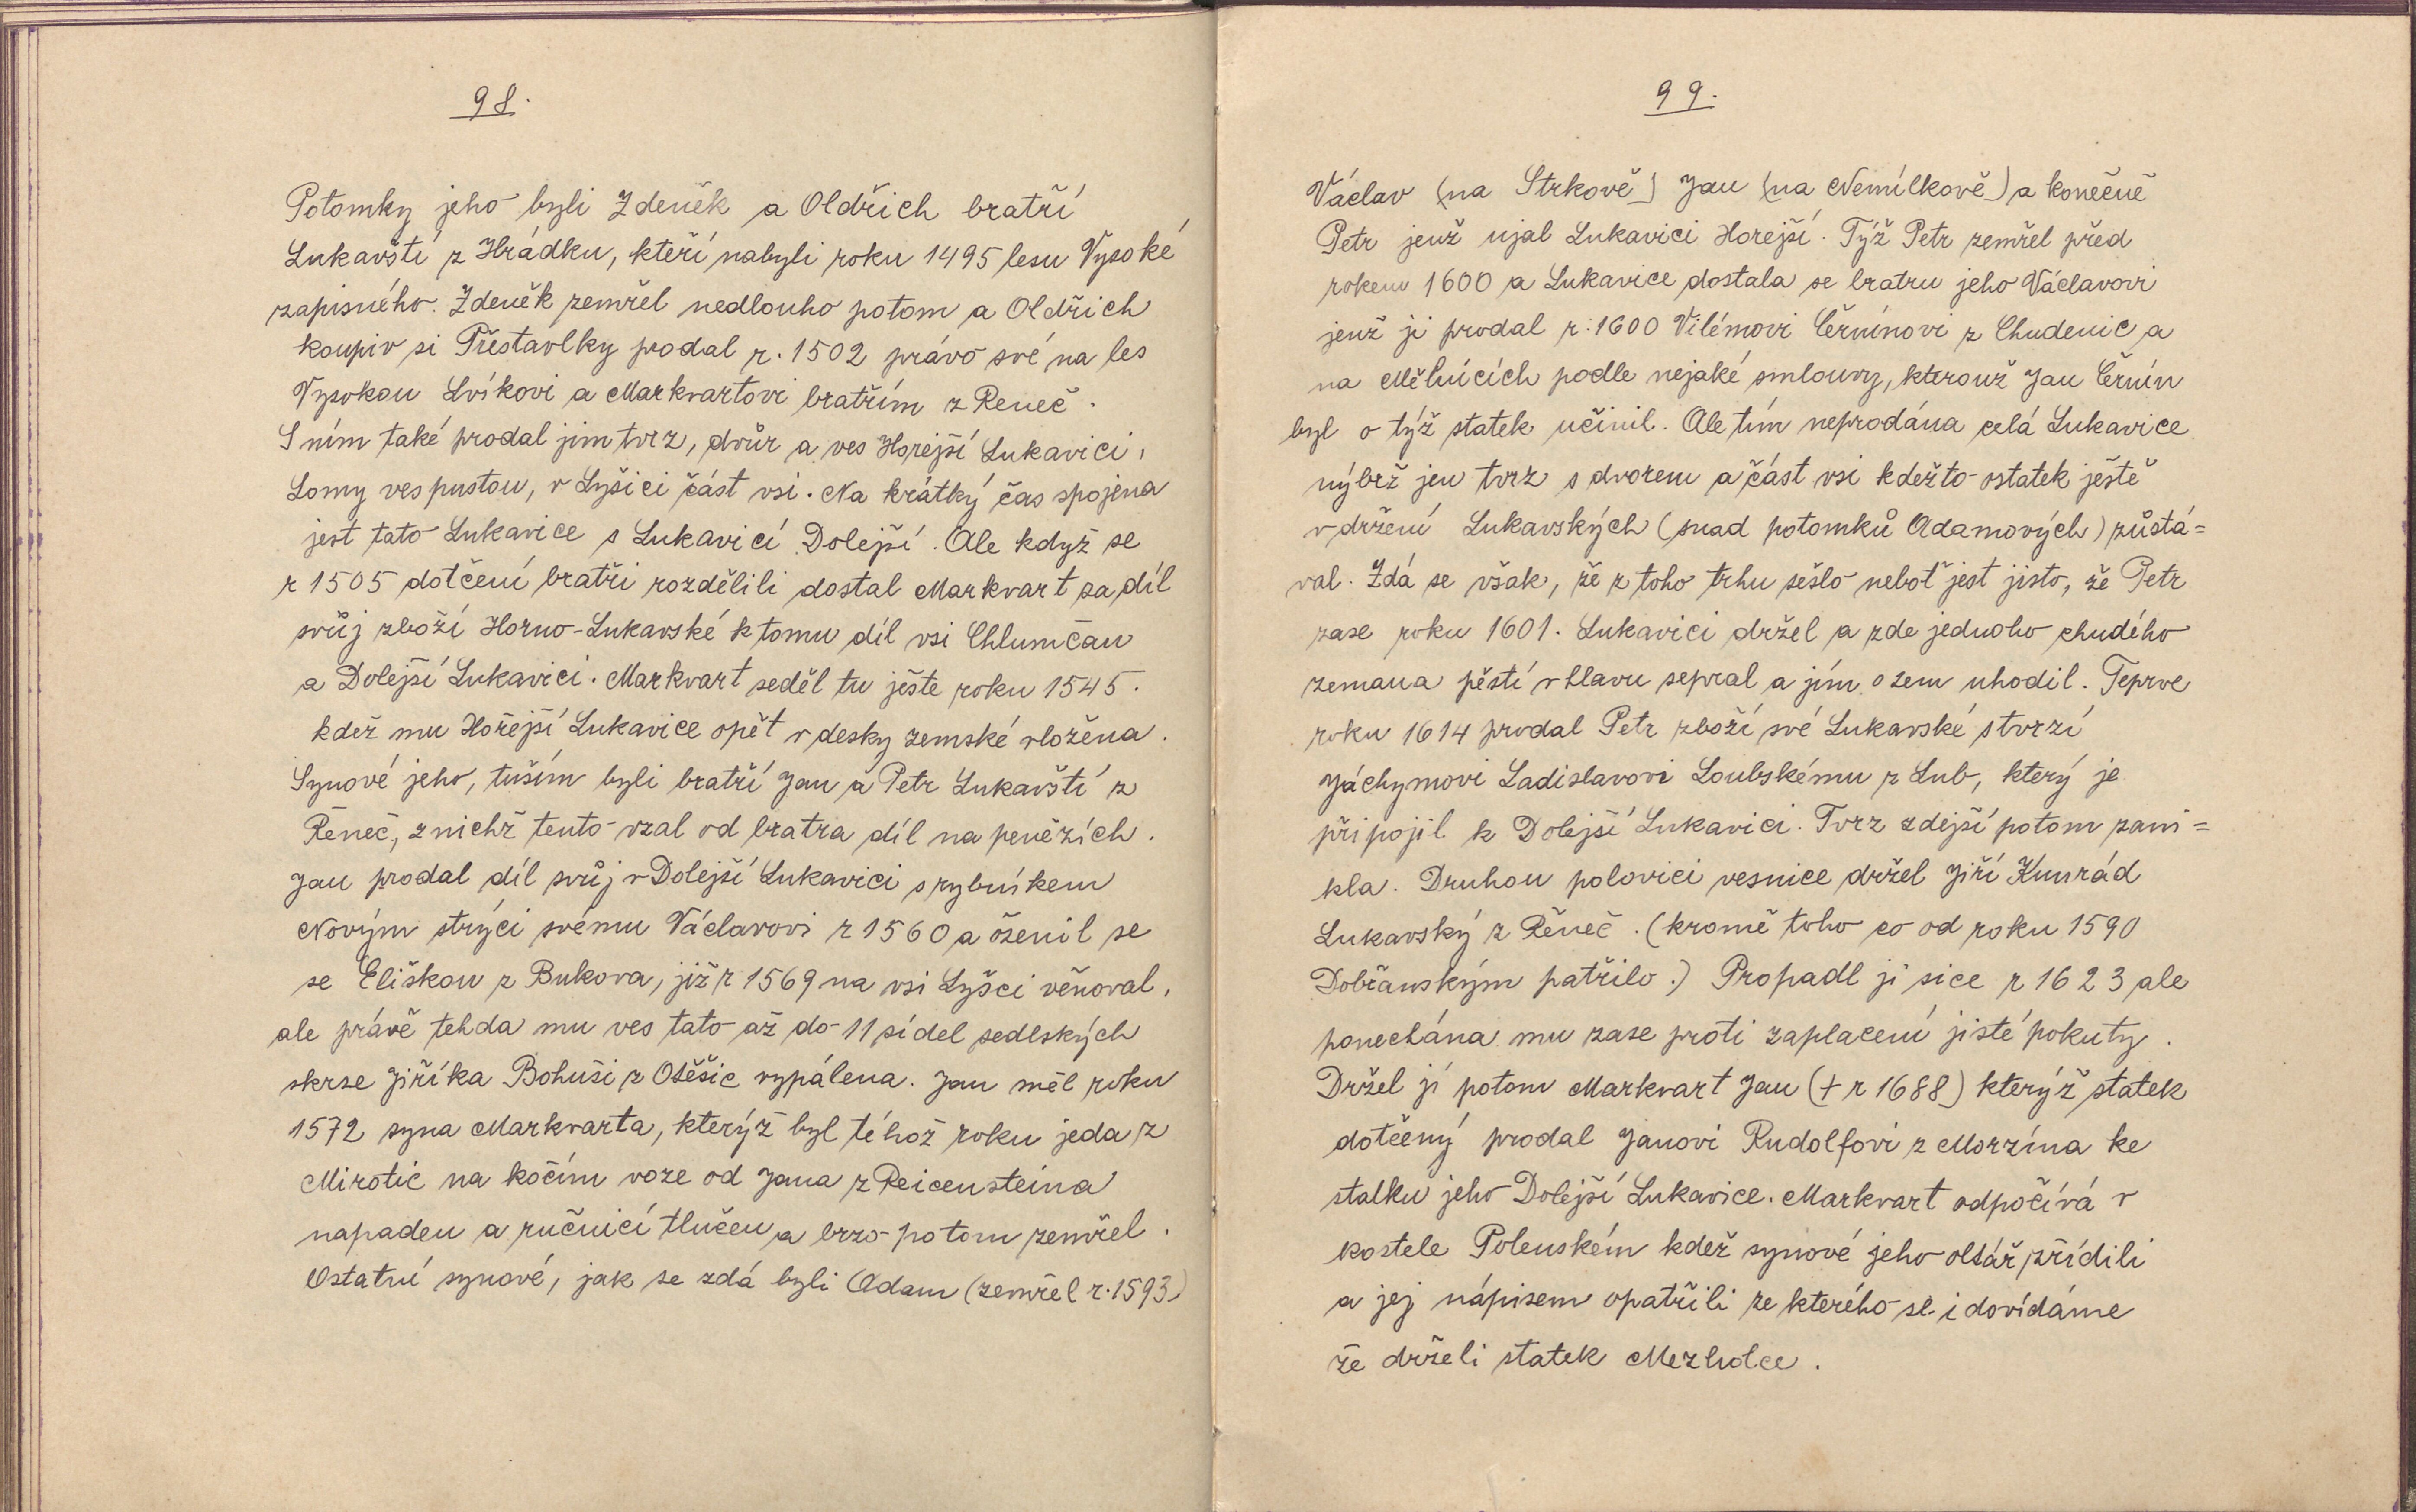 98.
Potomky jeho byli Zdeněk a Oldřich bratří
Lukavští z Hrádku, kteří nabyli roku 1495 lesu Vysoké
zapisného. Zdeněk zemřel nedlouho potom a Oldřich
koupiv si Přestavlky prodal r. 1502 právo své na les
Vysokou Lvíkovi a Markvartovi bratřím z Reneč.
S ním také prodal jim tvrz, dvůr a ves Horejší Lukavici,
Lomy ves pustou, v Lyšici část vsi. Na krátký čas spojena
jest tato Lukavice s Lukavicí Dolejší. Ale když se
r 1505 dotčení bratři rozdělili dostal Markvart za díl
svůj zboží Horno-Lukavské k tomu díl vsi Chlumčan
a Dolejší Lukavici. Markvart seděl tu ješte roku 1545.
kdež mu Hořejší Lukavice opět v desky zemské vložena.
Synové jeho, tuším byli bratří Jan a Petr Lukavští z
Řeneč, z nichž tento vzal od bratra díl na penězích.
Jan prodal díl svůj v Dolejší Lukavici s rybníkem
Novým strýci svému Václavovi r 1560 a oženil se
se Eliškou z Bukova, již r 1569 na vsi Lyšci věnoval,
ale právě tehda mu ves tato až do 11 sídel sedlských
skrse Jiříka Bohuši z Otěšic vypálena. Jan měl roku
1572 syna Markvarta, kterýž byl téhož roku jeda z
Mirotic na kočím voze od Jana z Reicensteina
napaden a ručnicí tlučen a brzo potom zemřel.
Ostatní synové, jak se zdá byli Adam (zemřel r. 1593)
99.
Václav (na Strkově) Jan (na Nemílkově) a konečně
Petr jenž ujal Lukavici Horejší. Týž Petr zemřel před
rokem 1600 a Lukavice dostala se bratru jeho Václavovi
jenž ji prodal r. 1600 Vilémovi Černínovi z Chudenic a
na Mělnicích podle nejaké smlouvy, kterouž Jan Černín
byl o týž statek učinil. Ale tím neprodána celá Lukavice
nýbrž jen tvrz s dvorem a část vsi kdežto ostatek ještě
v držení Lukavských (snad potomků Adamových) zůstá=
val. Zdá se však, že z toho trhu sešlo neboť jest jisto, že Petr
zase roku 1601. Lukavici držel a zde jednoho chudého
zemana pěstí v hlavu sepral a jím o zem uhodil. Teprve
roku 1614 prodal Petr zboží své Lukavské s tvrzí
Jáchymovi Ladislavovi Loubskému z Lub, který je
připojil k Dolejší Lukavici. Tvrz zdejší potom zani=
kla. Druhou polovici vesnice držel Jiří Kunrád
Lukavský z Řěneč. (kromě toho co od roku 1590
Dobřanským patřilo.) Propadl ji sice r 1623 ale
ponechána mu zase proti zaplacení jisté pokuty.
Držel jí potom Markvart Jan (+ r 1688) kterýž statek
dotčený prodal Janovi Rudolfovi z Morzína ke
stalku jeho Dolejší Lukavice. Markvart odpočívá v
kostele Polenském kdež synové jeho oltář zřídili
a jej nápisem opatřili ze kterého se i dovídáme
že drželi statek Mezholce.